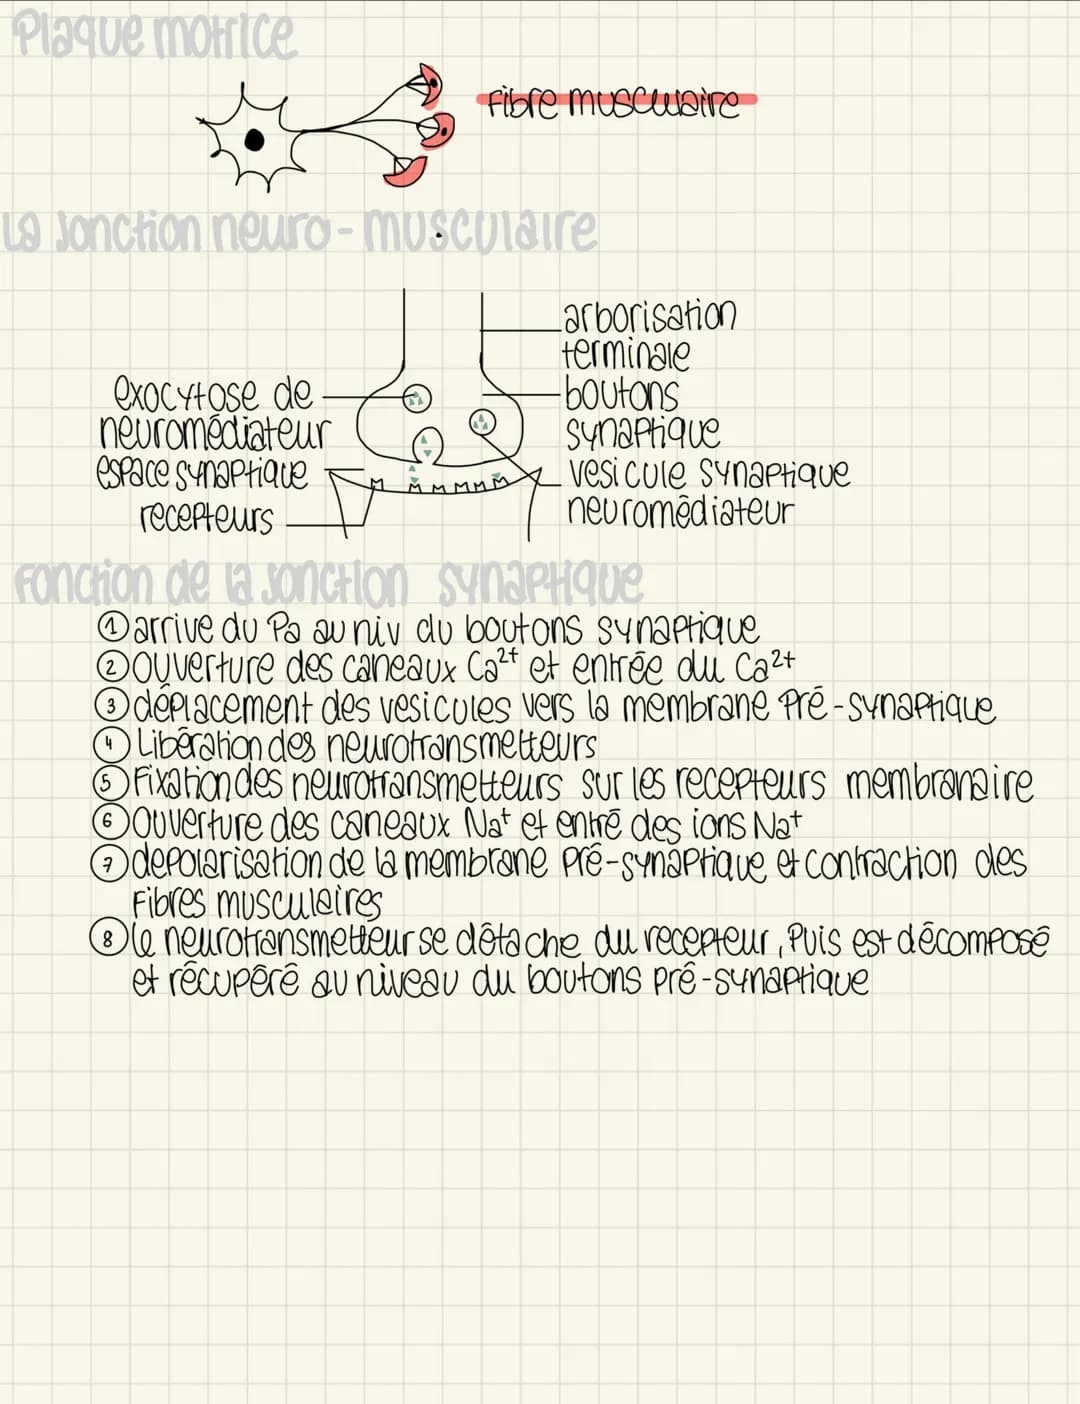 Plaque motrice
Fibre musculaire
La Jonction neuro-musculaire
arborisation
terminale
exocytose de
neuromédiateur
boutons
synaptique
espace synaptique
vesicule synaptique
neuromédiateur
recepteurs
Fonction de la Jonction synaptique
1 arrive du Pa au niv du boutons synaptique
2 ouverture des caneaux Ca²⁺ et entrée du Ca²⁺
3 déplacement des vesicules vers la membrane Pré-synaptique
4 Libération des neurotransmetteurs
5 Fixation des neurotransmetteurs sur les recepteurs membranaire
6 Ouverture des caneaux Na⁺ et entré des ions Na⁺
7 depolarisation de la membrane Pré-synaptique et contraction des
Fibres musculaires
8 le neurotransmetteur se détache du recepteur, Puis est décomposé
et récupéré au niveau du boutons pré-synaptique